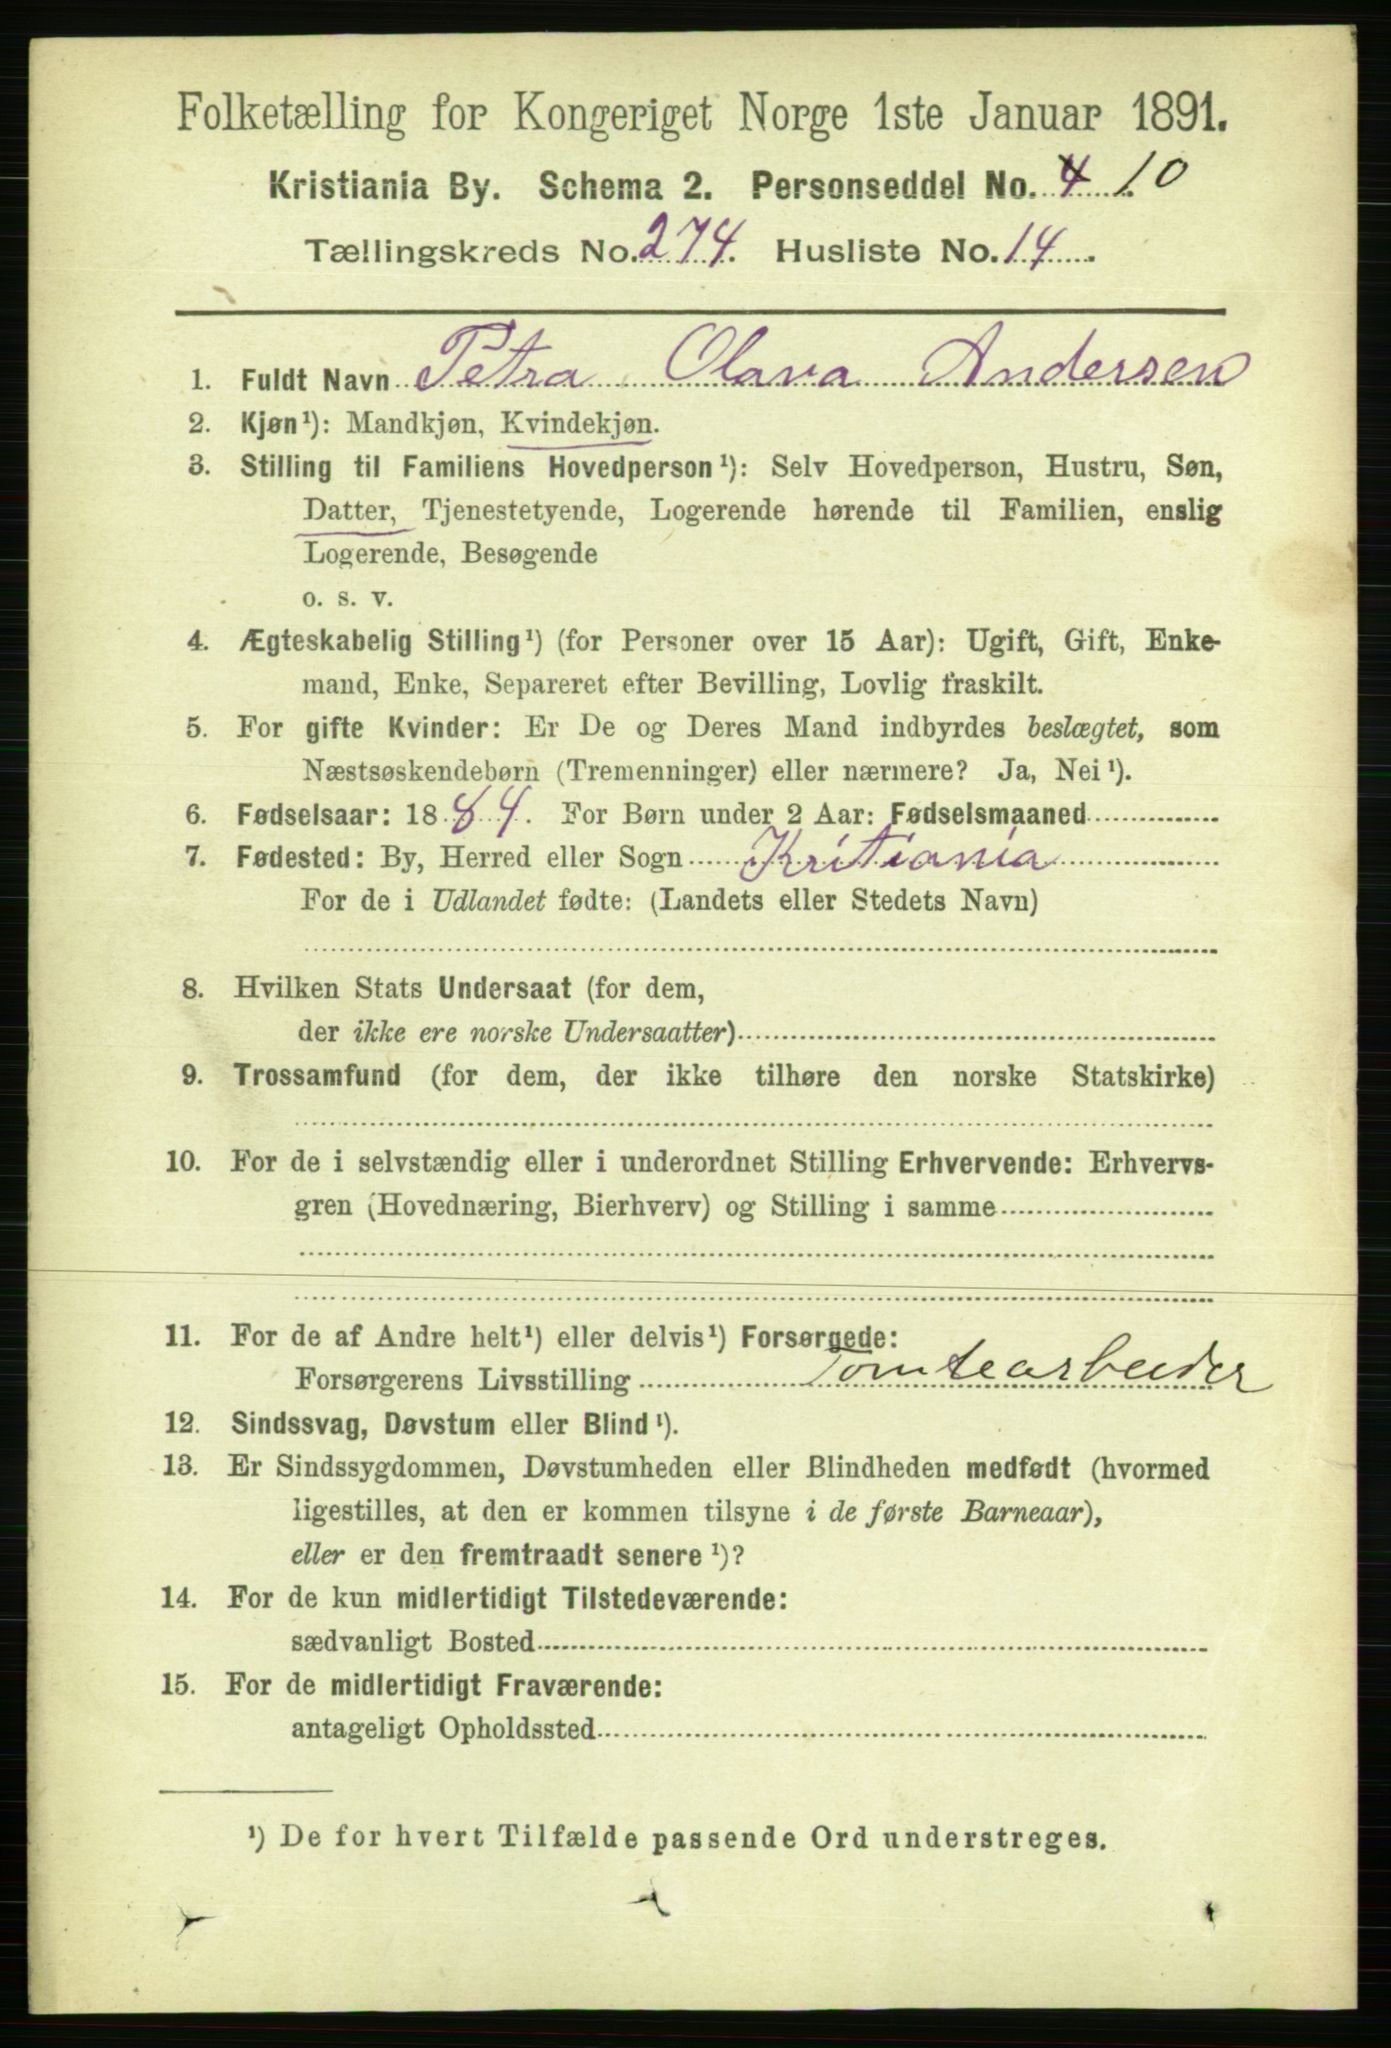 Folketælling for Kongeriget Norge 1ste Januar 1891.
Kristiania By. Schema 2. Personseddel No. 4 10
Tællingskreds No. 274. Husliste No. 14
1. Fuldt Navn Petra Olava Andersen
2. Kjøn¹): Mandkjøn, Kvindekjøn.
3. Stilling til Familiens Hovedperson¹): Selv Hovedperson, Hustru, Søn,
Datter, Tjenestetyende, Logerende hørende til Familien, enslig
Logerende, Besøgende
o. s. v.
4. Ægteskabelig Stilling¹) (for Personer over 15 Aar): Ugift, Gift, Enke-
mand, Enke, Separeret efter Bevilling, Lovlig fraskilt.
5. For gifte Kvinder: Er De og Deres Mand indbyrdes beslægtet, som
Næstsøskendebørn (Tremenninger) eller nærmere? Ja, Nei¹).
6. Fødselsaar: 1884. For Børn under 2 Aar: Fødselsmaaned
7. Fødested: By, Herred eller Sogn Kritiania
For de i Udlandet fødte: (Landets eller Stedets Navn)
8. Hvilken Stats Undersaat (for dem,
der ikke ere norske Undersaatter)
9. Trossamfund (for dem, der ikke tilhøre den norske Statskirke)
10. For de i selvstændig eller i underordnet Stilling Erhvervende: Erhvervs-
gren (Hovednæring, Bierhverv) og Stilling i samme
11. For de af Andre helt¹) eller delvis¹) Forsørgede:
Forsørgerens Livsstilling Tomtearbeider
12. Sindssvag, Døvstum eller Blind¹).
13. Er Sindssygdommen, Døvstumheden eller Blindheden medfødt (hvormed
ligestilles, at den er kommen tilsyne i de første Barneaar),
eller er den fremtraadt senere¹)?
14. For de kun midlertidigt Tilstedeværende:
sædvanligt Bosted
15. For de midlertidigt Fraværende:
antageligt Opholdssted
¹) De for hvert Tilfælde passende Ord understreges.